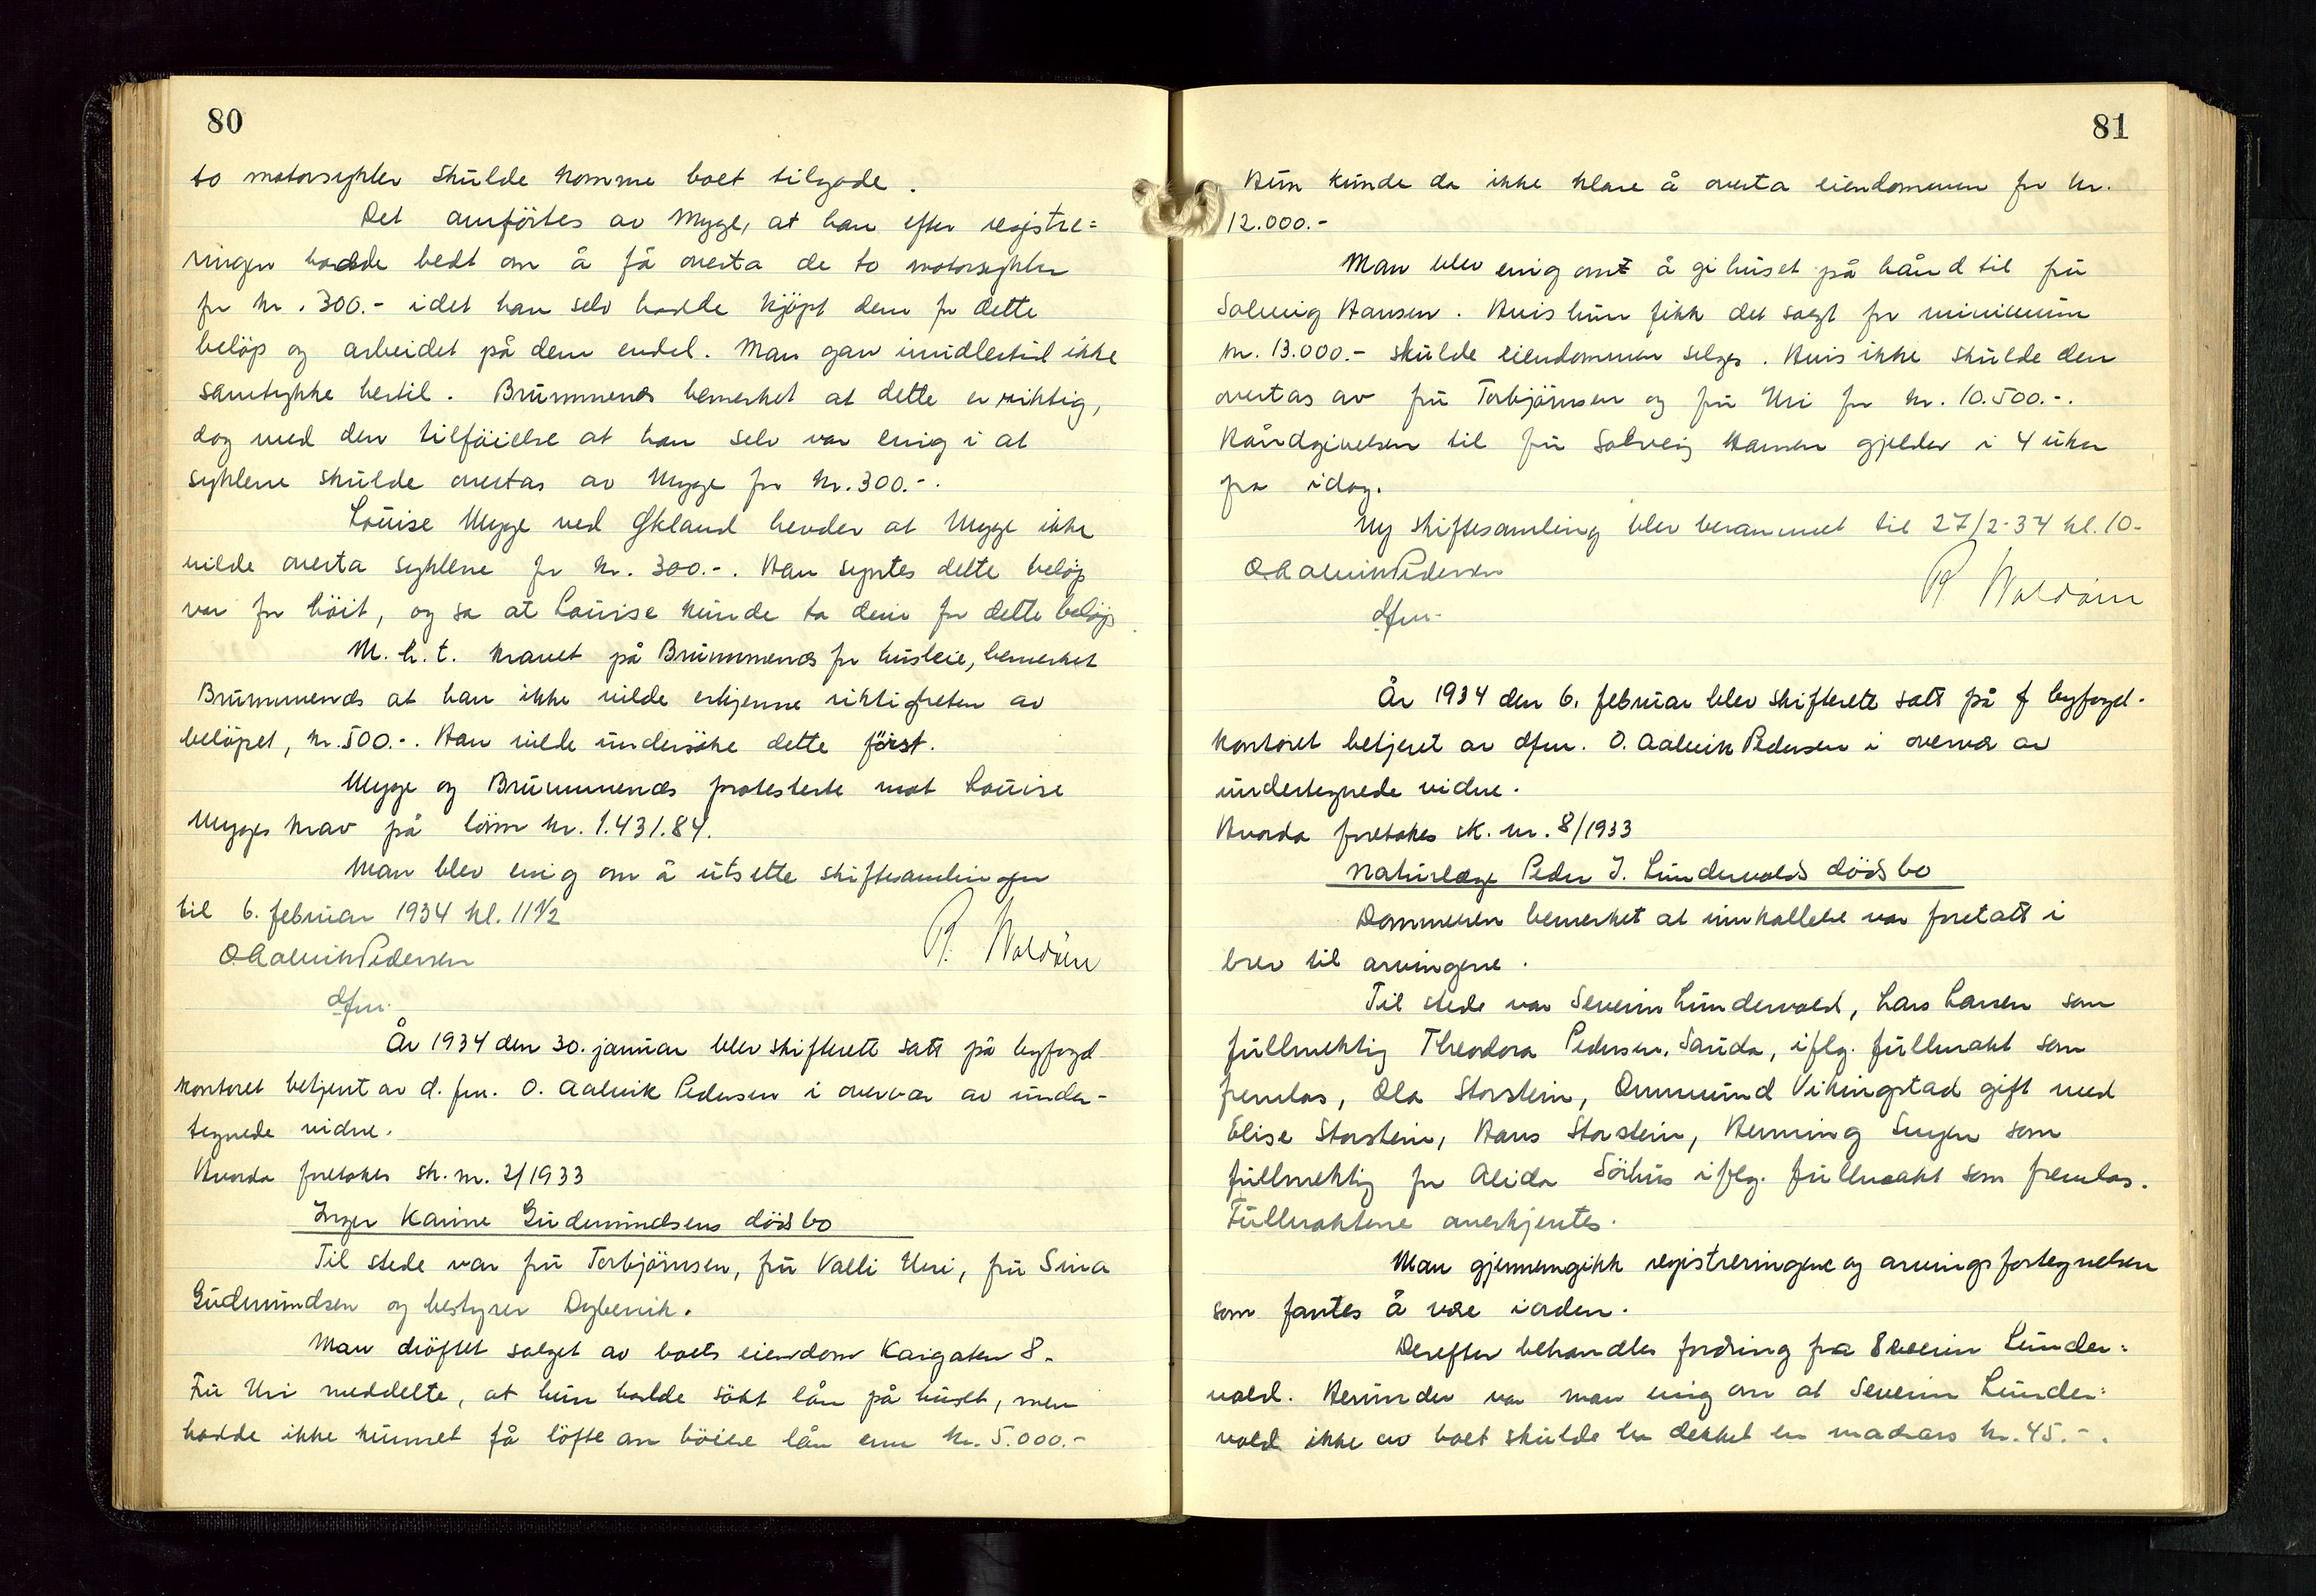 80
to motorsykler skulde komme boet tilgode.
Det anførtes av Mygge, at han efter registre=
ringen hadde bedt om å få overta de to motorsykler
for kr. 300.- idet han selv hadde kjøpt dem for dette
beløp og arbeidet på dem endel. Man gav imidlertid ikke
samtykke hertil. Brummenæs bemerket at dette er riktig,
dog med den tilføielse at han selv var enig i at
syklene skulde overtas av Mygge for kr. 300.-.
Louise Mygge ved Økland hevder at Mygge ikke
vilde overta syklene for kr. 300.-. Han syntes dette beløp
var for høit, og sa at Louise kunde ta dem for dette beløp
M. h. t. kravet på Brummenæs for husleie, bemerket
Brummenæs at han ikke vilde erkjenne riktigheten av
beløpet, kr. 500.-. Han vilde undersøke dette først.
Mygge og Brummenæs protesterte mot Louise
Mygges krav på lønn kr. 1.431.84.
Man blev enig om å utsette skiftesamlingen
til 6. februar 1934 kl. 11½
O. Aalvik Pedersen
dfm.
År 1934 den 30. januar blev skifterett satt på byfogd
kontoret betjent av d. fm. O. Aalvik Pedersen i overvær av under-
tegnede vidne.
Hvorda foretokes sk. nr. 2/1933
Inger Karine Gudmundsens dødsbo
Til stede var fru Torbjørnsen, fru Valli Uri, fru Sina
Gudmundsen og bestyrer Dybevik.
Man drøftet salget av boets eiendom Kaigaten 8.
Fru Uri meddelte, at hun hadde søkt lån på huset, men
hadde ikke kunnet få løfte om høiere lån enn kr. 5.000.-
81
Hun kunde da ikke klare å overta eiendommen for kr.
12.000.-
Man blev enig om å gi huset på hånd til fru
Solveig Hansen. Hvis hun fikk det solgt for minimum
kr. 13.000.- skulde eiendommen selges. Hvis ikke skulde den
overtas av fru Torbjørnsen og fru Uri for kr. 10.500.-.
Håndgivelsen til fru Solveig Hansen gjelder i 4 uker
fra idag.
Ny skiftesamling blev berammet til 27/2-34 kl. 10-
O. Aalvik Pedersen
dfm.
År 1934 den 6. februar blev skifterett satt på byfogd-
kontoret betjent av dfm. O. Aalvik Pedersen i overvær av
undertegnede vidne.
Hvorda foretokes sk. nr. 8/1933
Naturlæge Peder J. Lundervolds dødsbo
Dommeren bemerket at innkallelse var foretatt i
brev til arvingene.
Til stede var Severin Lundervold, Lars Larsen som
fullmektig Theodora Pedersen, Sauda, iflg. fullmakt som
fremlas, Ola Storstein, Ommund Vikingstad gift med
Elise Storstein, Hans Storstein, Henning som
fullmektig for Alida Sørhus iflg. fullmakt som fremlas.
Fullmaktene anerkjentes.
Man gjennemgikk registreringene og arvingsfortegnelsen
som fantes å være iorden.
Derefter behandles fordring fra Severin Lunder=
vold. Herunder var man enig om at Severin Lunder=
vold ikke av boet skulde ha dekket en madrass kr. 45.-.